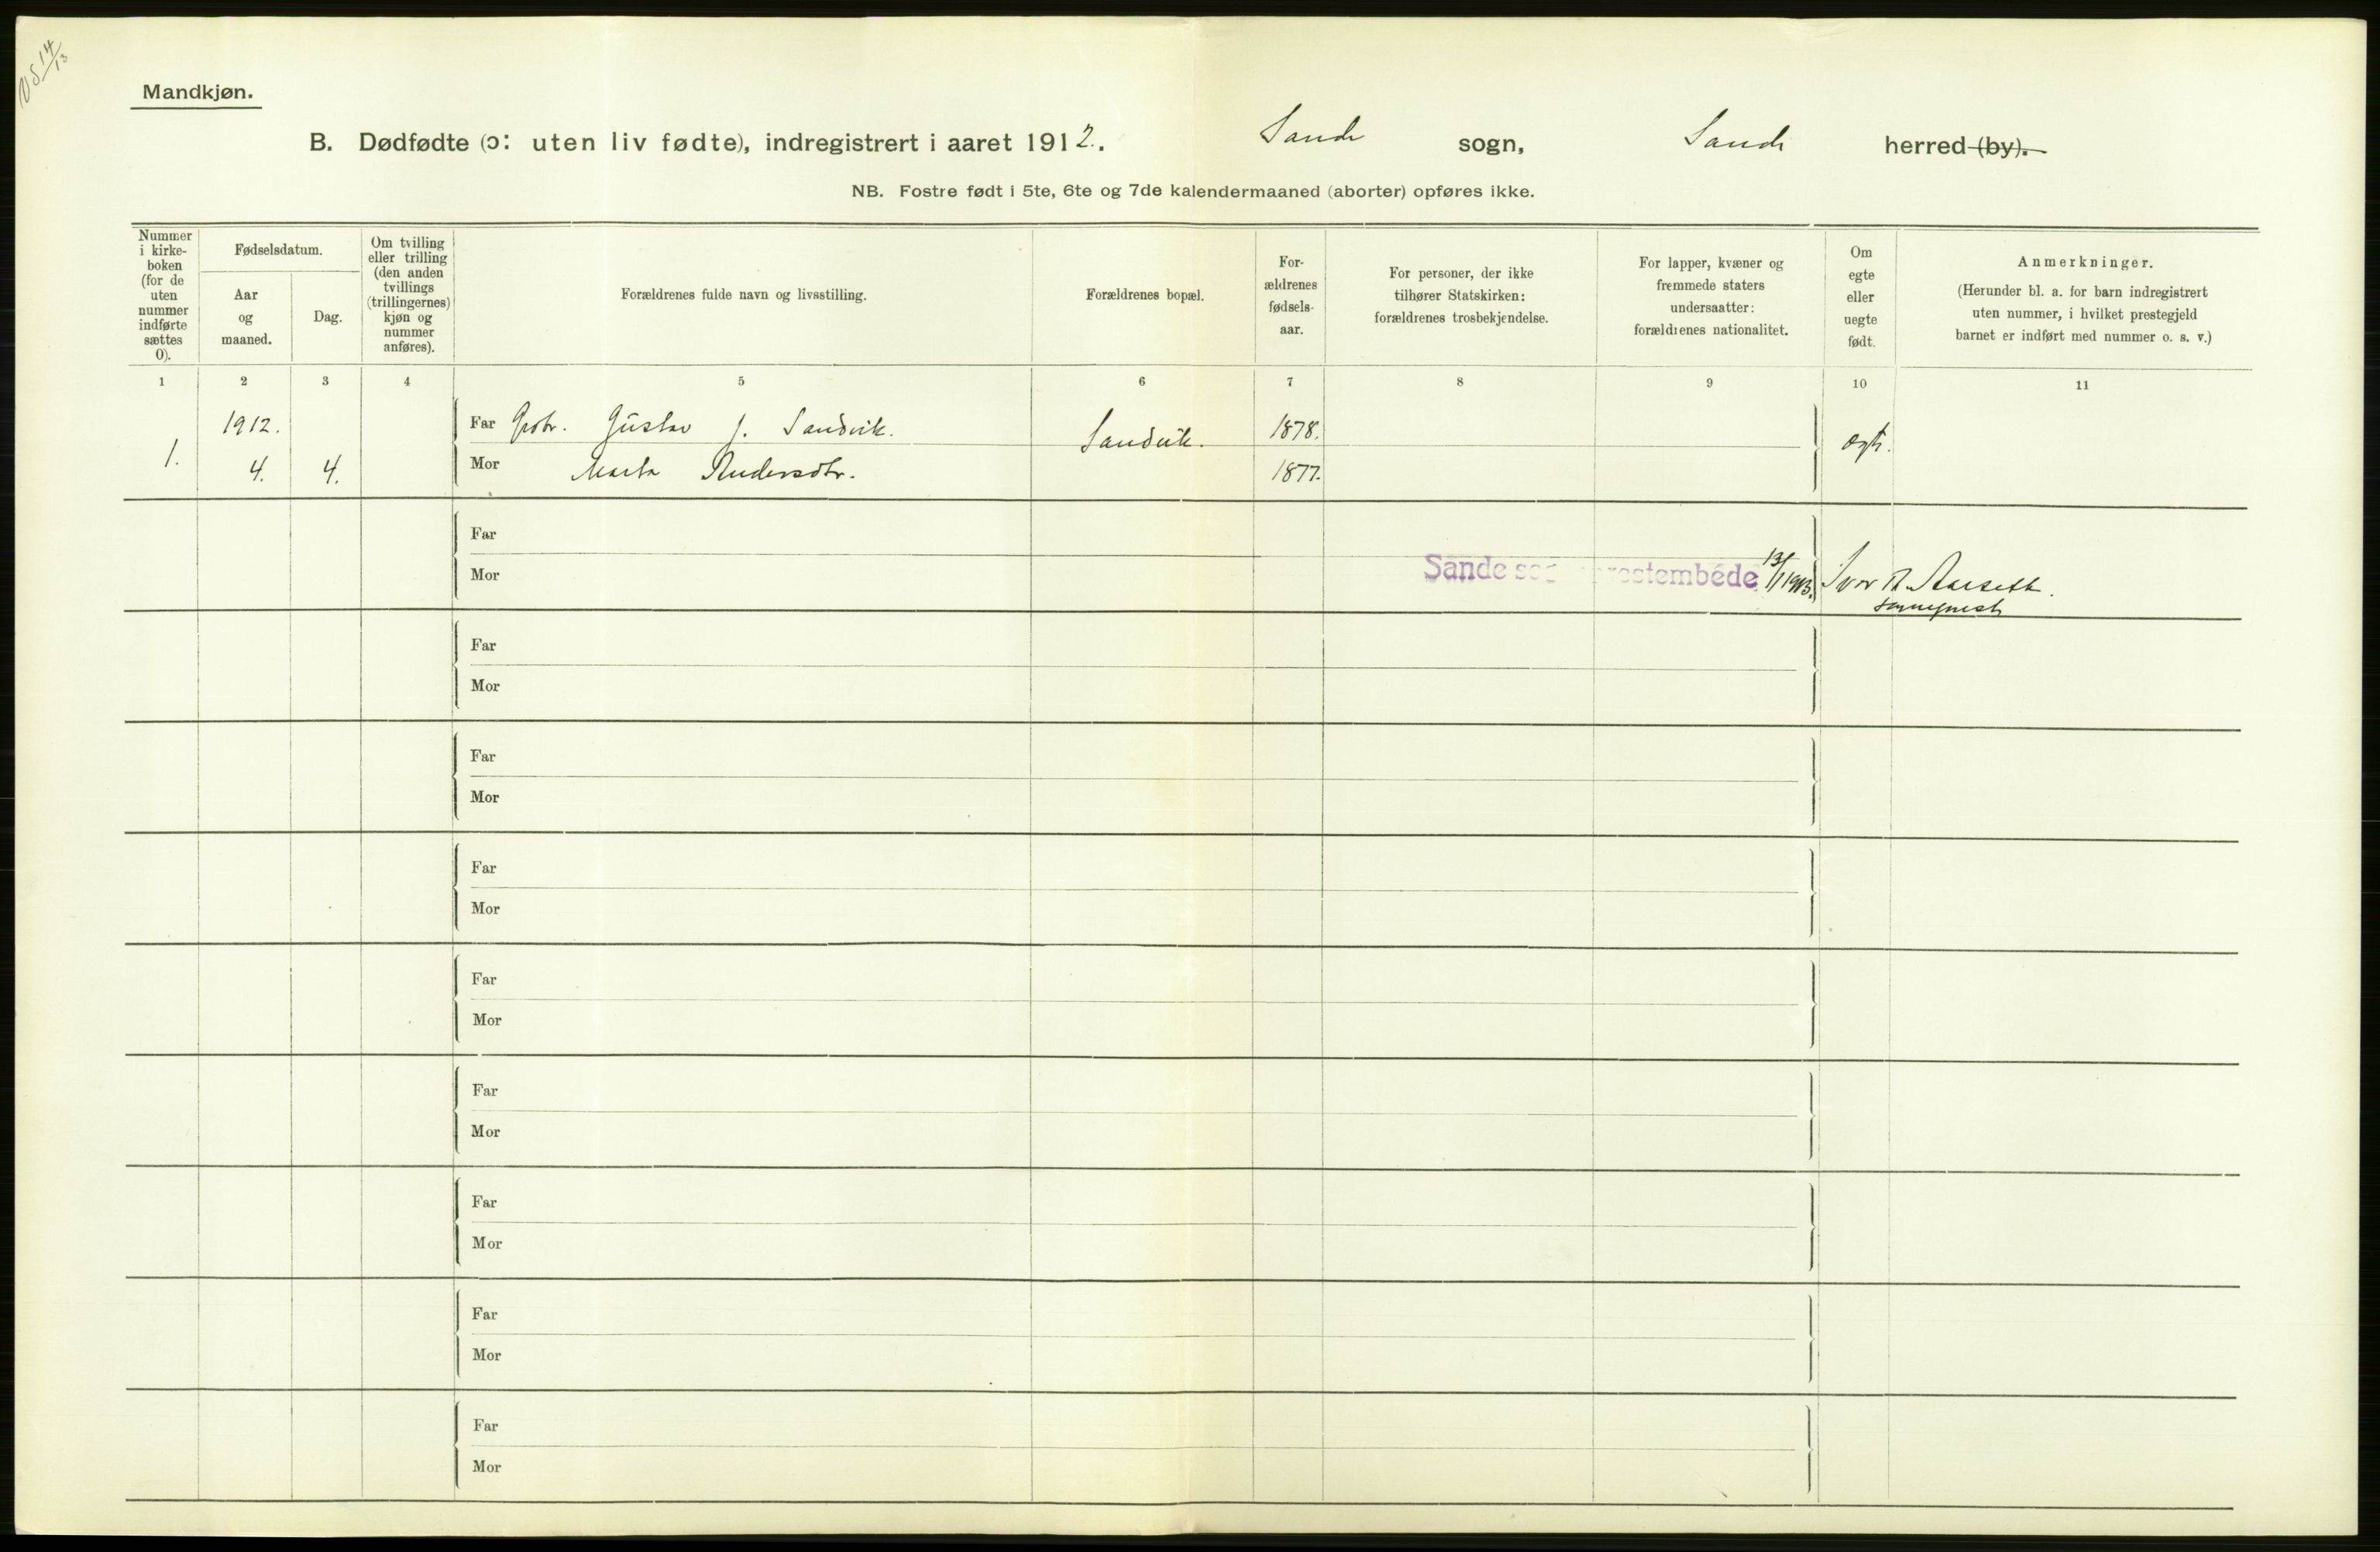 Mandkjøn.
B. Dødfødte (ɔ: uten liv fødte), indregistrert i aaret 1912. Sande sogn, Sande herred (by).
NB. Fostre født i 5te, 6te og 7de kalendermaaned (aborter) opføres ikke.
Nummer
i kirke-
boken
(for de
uten
nummer
indførte
sættes
0).
Fødselsdatum.
Aar
og
maaned.
Dag.
Om tvilling
eller trilling
(den anden
tvillings
(trillingernes)
kjøn og
nummer
anføres).
Forældrenes fulde navn og livsstilling.
Forældrenes bopæl.
For-
ældrenes
fødsels-
aar.
For personer, der ikke
tilhører Statskirken:
forældrenes trosbekjendelse.
For lapper, kvæner og
fremmede staters
undersaatter:
forældrenes nationalitet.
Om
egte
eller
uegte
født.
Anmerkninger.
(Herunder bl. a. for barn indregistrert
uten nummer, i hvilket prestegjeld
barnet er indført med nummer o. s. v.)
1 2 3 4 5 6 7 8 9 10 11
1.
1912.
4. 4.
Far Gbr. Gustav J. Sandvik.
Mor Marta Andersdtr.
Sandvik.
1878.
1877.
ægte.
Far
Mor
Sande sogneprestembede 13/1 1913. Ivar A. Aarseth.
sogneprest
Far
Mor
Far
Mor
Far
Mor
Far
Mor
Far
Mor
Far
Mor
Far
Mor
Far
Mor